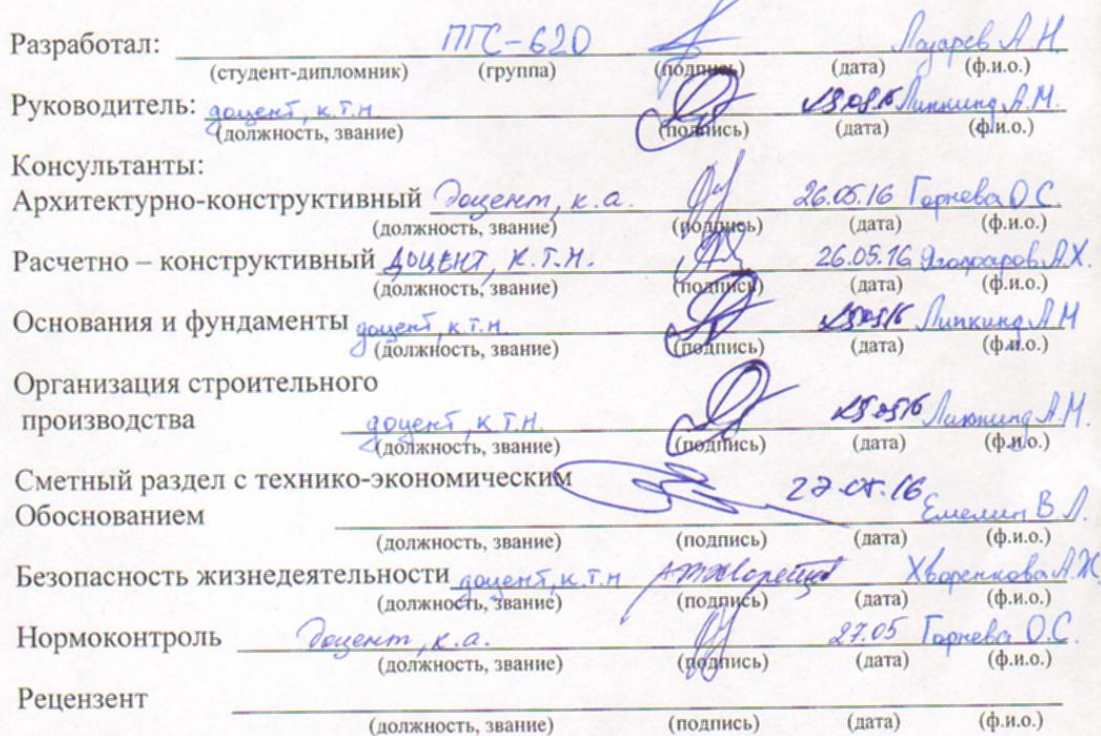 Разработал: ПГС-620 Лазарев А.Н.
(студент-дипломник) (группа) (подпись) (дата) (ф.и.о.)
Руководитель: доцент, к.т.н. Липкинд А.М.
(должность, звание) (подпись) (дата) (ф.и.о.)
Консультанты:
Архитектурно-конструктивный доцент, к.а. 26.05.16 Горнева О.С.
(должность, звание) (подпись) (дата) (ф.и.о.)
Расчетно – конструктивный доцент, к.т.н. 26.05.16 А.Х.
(должность, звание) (подпись) (дата) (ф.и.о.)
Основания и фундаменты доцент, к.т.н. Липкинд А.М
(должность, звание) (подпись) (дата) (ф.и.о.)
Организация строительного
производства доцент, к.т.н. Липкинд А.М.
(должность, звание) (подпись) (дата) (ф.и.о.)
Сметный раздел с технико-экономическим
Обоснованием Емелин В.Л.
(должность, звание) (подпись) (дата) (ф.и.о.)
Безопасность жизнедеятельности доцент, к.т.н Хворенкова А.Ж
(должность, звание) (подпись) (дата) (ф.и.о.)
Нормоконтроль доцент, к.а. 27.05 Горнева О.С.
(должность, звание) (подпись) (дата) (ф.и.о.)
Рецензент
(должность, звание) (подпись) (дата) (ф.и.о.)